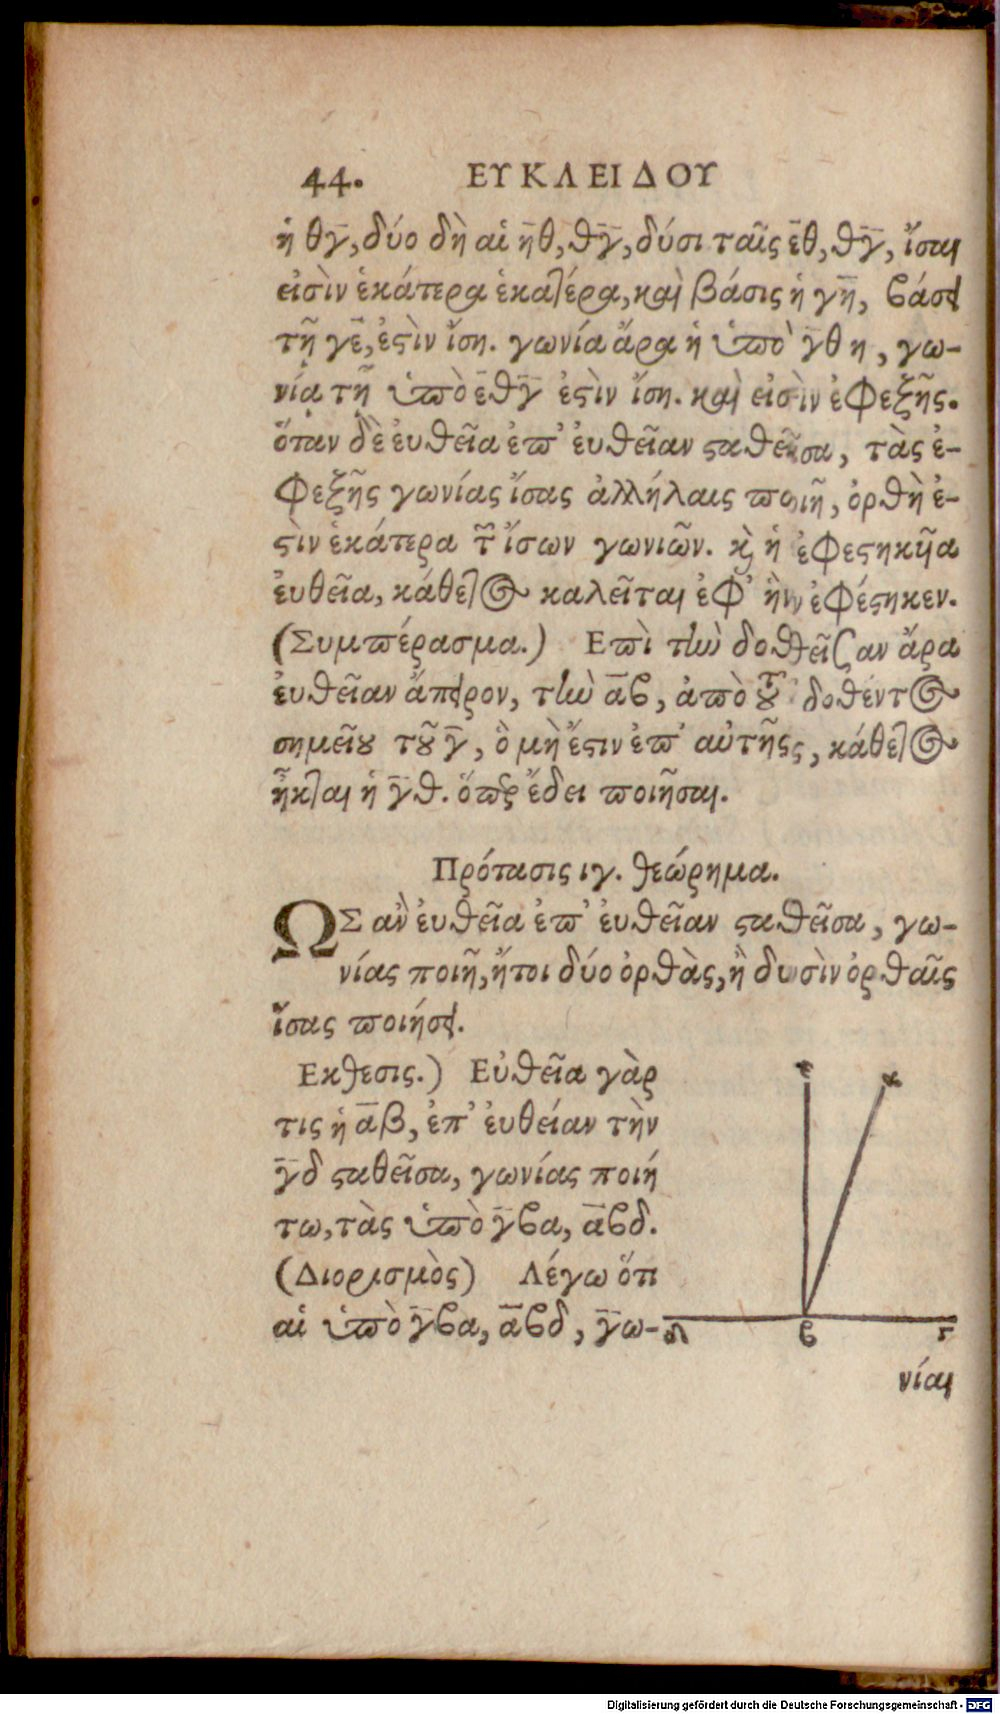 44. ΕΥΚΛΕΙΔΟΥ
ἡ θγ̄, δύο δὴ αἱ η̄θ, θ̄γ̄, δύσι ταῖς ε̄θ, θ̄γ̄, ἴσαι
εἰσὶν ἑκάτερα ἑκατέρα, καὶ βάσις ἡ γη̄, ϐάσει
τῇ γε̄, ἐϛὶν ἴση. γωνία ἄρα ἡ ὑπὸ γ̄θη, γω-
νίᾳ τῇ ὑπὸ ε̄θγ̄ ἐϛὶν ἴση. καὶ εἰσὶν ἐφεξῆς.
ὅταν δὲ ἐυθεῖα ἐπ’ ἐυθεῖαν ϛαθεῖσα, τὰς ἐ-
φεξῆς γωνίας ἴσας ἀλλήλαις ποιῇ, ὀρθὴ ἐ-
ϛὶν ἑκάτερα τῶν ἴσων γωνιῶν. κ̀ ἡ ἐφεϛηκῆα
ἐυθεῖα, κάθετος καλεῖται ἐφ’ ἣν ἐφέϛηκεν.
(Συμπέρασμα.) Επὶ τὴν δοθεῖσαν ἄρα
ἐυθεῖαν ἄπειρον, τὴν ᾱϐ, ἀπὸ τȣ͂ δοθέντος
σημείȣ τȣ͂ γ̄, ὃ μὴ ἔϛιν ἐπ’ αὐτῆς, κάθετος
ἦκται ἡ γ̄θ. ὅπερ ἔδει ποιῆσαι.
Πρότασις ιγ. θεώρημα.
ΩΣ ἀν̀ ἐυθεῖα ἐπ’ ἐυθεῖαν ϛαθεῖσα, γω-
νίας ποιῇ, ἤτοι δύο ὀρθὰς, ἢ δυσὶν ὀρθαῖς
ἴσας ποιήσει.
Εκθεσις.) Εὐθεῖα γὰρ
τις ἡ ᾱβ, ἐπ’ ἐυθείαν τὴν
γ̄δ ϛαθεῖσα, γωνίας ποιή
τω, τὰς ὑπὸ γ̄ϐα, ᾱϐδ.
(Διορισμὸς) Λέγω ὅτι
αἱ ὑπὸ γ̄ϐα, ᾱϐδ, γ̄ω-
ε α
δ ϐ γ
νίαι
Digitalisierung gefördert durch die Deutsche Forschungsgemeinschaft - DFG